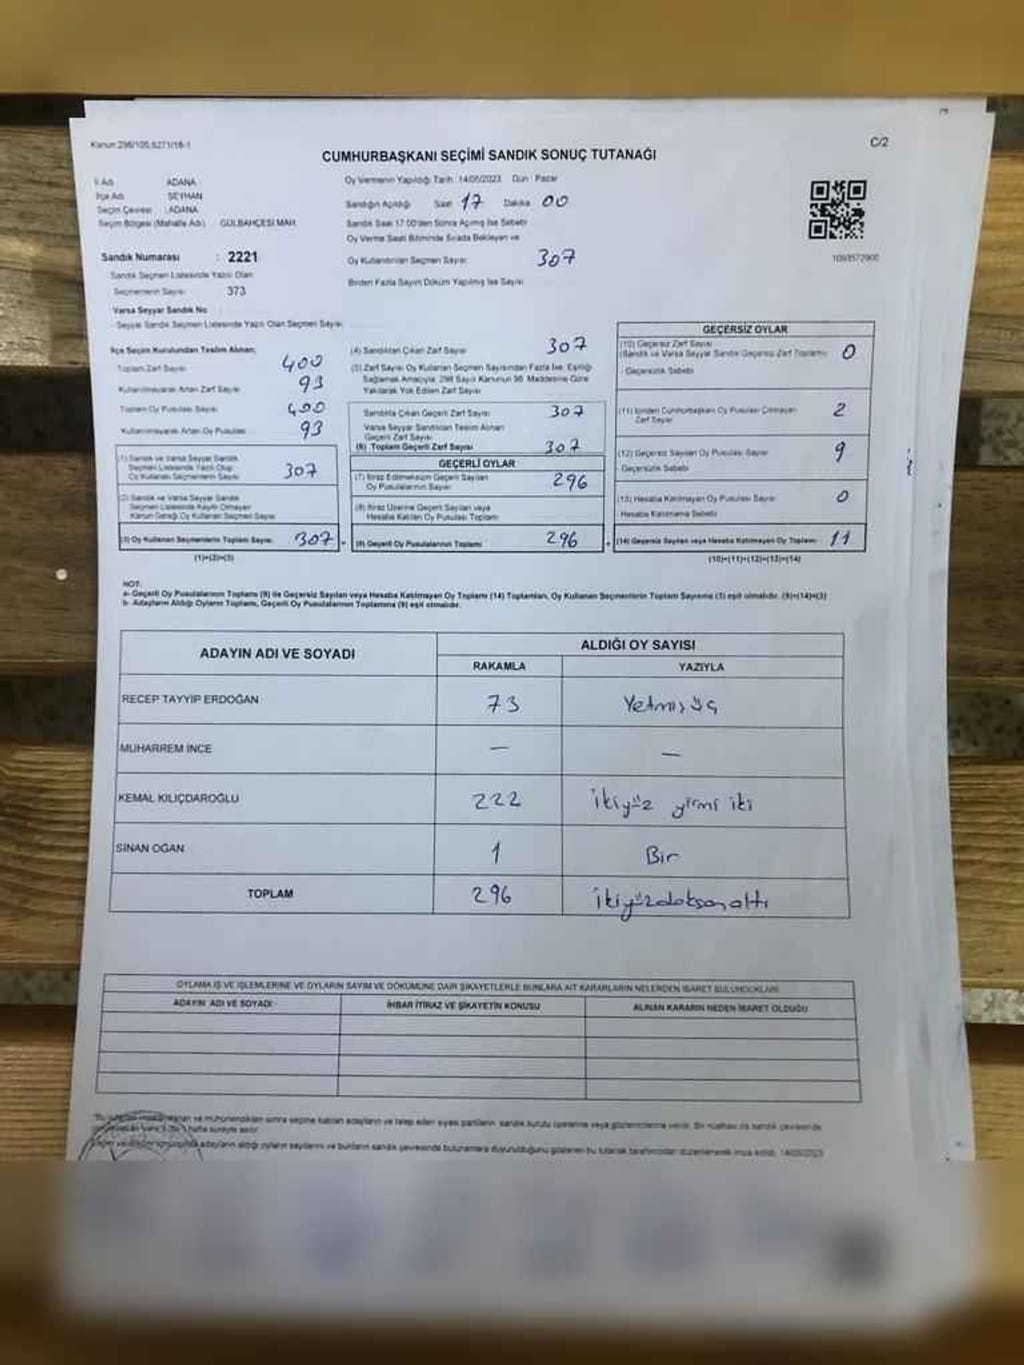 Kanun 298/105,6271/16-1
C/2
CUMHURBAŞKANI SEÇİMİ SANDIK SONUÇ TUTANAĞI
İl Adı ADANA
İlçe Adı SEYHAN
Seçim Çevresi : ADANA
Seçim Bölgesi (Mahalle Adı) GÜLBAHÇESİ MAH.
Sandık Numarası : 2221
Sandık Seçmen Listesinde Yazılı Olan
Seçmenlerin Sayısı 373
Varsa Seyyar Sandık No
Seyyar Sandık Seçmen Listesinde Yazılı Olan Seçmen Sayısı
Oy Vermenin Yapıldığı Tarih : 14/05/2023 Gün : Pazar
Sandığın Açıldığı Saat 17 Dakika 00
Sandık Saat 17.00'den Sonra Açılmış İse Sebebi
Oy Verme Saati Bitiminde Sırada Bekleyen ve
Oy Kullandırılan Seçmen Sayısı 307
Birden Fazla Sayım Döküm Yapılmış İse Sayısı
1093572900
İlçe Seçim Kurulundan Teslim Alınan;
Toplam Zarf Sayısı 400
Kullanılmayarak Artan Zarf Sayısı 93
Toplam Oy Pusulası Sayısı 400
Kullanılmayarak Artan Oy Pusulası 93
(1) Sandık ve Varsa Seyyar Sandık
Seçmen Listesinde Yazılı Olup
Oy Kullanan Seçmenlerin Sayısı 307
(2) Sandık ve Varsa Seyyar Sandık
Seçmen Listesinde Kayıtlı Olmayan
Kanun Gereği Oy Kullanan Seçmen Sayısı
(3) Oy Kullanan Seçmenlerin Toplam Sayısı 307
(1)+(2)=(3)
(4) Sandıktan Çıkan Zarf Sayısı 307
(5) Zarf Sayısı Oy Kullanan Seçmen Sayısından Fazla İse, Eşitliği
Sağlamak Amacıyla, 298 Sayılı Kanunun 98. Maddesine Göre
Yakılarak Yok Edilen Zarf Sayısı
Sandıkta Çıkan Geçerli Zarf Sayısı 307
Varsa Seyyar Sandıktan Teslim Alınan
Geçerli Zarf Sayısı
(6) Toplam Geçerli Zarf Sayısı 307
GEÇERLİ OYLAR
(7) İtiraz Edilmeksizin Geçerli Sayılan
Oy Pusulalarının Sayısı 296
(8) İtiraz Üzerine Geçerli Sayılan veya
Hesaba Katılan Oy Pusulası Toplamı
(9) Geçerli Oy Pusulalarının Toplamı 296
GEÇERSİZ OYLAR
(10) Geçersiz Zarf Sayısı
(Sandık ve Varsa Seyyar Sandık Geçersiz Zarf Toplamı) 0
Geçersizlik Sebebi
(11) İçinden Cumhurbaşkanı Oy Pusulası Çıkmayan
Zarf Sayısı 2
(12) Geçersiz Sayılan Oy Pusulası Sayısı 9
Geçersizlik Sebebi
(13) Hesaba Katılmayan Oy Pusulası Sayısı 0
Hesaba Katılmama Sebebi
(14) Geçersiz Sayılan veya Hesaba Katılmayan Oy Toplamı 11
(10)+(11)+(12)+(13)=(14)
NOT:
a- Geçerli Oy Pusulalarının Toplamı (9) ile Geçersiz Sayılan veya Hesaba Katılmayan Oy Toplamı (14) Toplamları, Oy Kullanan Seçmenlerin Toplam Sayısına (3) eşit olmalıdır. (9)+(14)=(3)
b- Adayların Aldığı Oyların Toplamı, Geçerli Oy Pusulalarının Toplamına (9) eşit olmalıdır.
ADAYIN ADI VE SOYADI ALDIĞI OY SAYISI
RAKAMLA YAZIYLA
RECEP TAYYİP ERDOĞAN 73 Yetmiş üç
MUHARREM İNCE — —
KEMAL KILIÇDAROĞLU 222 ikiyüz yirmi iki
SİNAN OĞAN 1 Bir
TOPLAM 296 ikiyüzdoksanaltı
OYLAMA İŞ VE İŞLEMLERİNE VE OYLARIN SAYIM VE DÖKÜMÜNE DAİR ŞİKAYETLERLE BUNLARA AİT KARARLARIN NELERDEN İBARET BULUNDUKLARI
ADAYIN ADI VE SOYADI İHBAR İTİRAZ VE ŞİKAYETİN KONUSU ALINAN KARARIN NEDEN İBARET OLDUĞU
ve mühürlendikten sonra seçime katılan adayların ve talep eden siyasi partilerin sandık kurulu üyelerine veya gözlemcilerine verilir. Bir nüshası da sandık çevresinde
hafta süreyle asılır
adayların aldığı oyların sayılarını ve bunların sandık çevresinde bulunanlara duyurulduğunu gösteren bu tutanak tarafımızdan düzenlenerek imza edildi. 14/05/2023